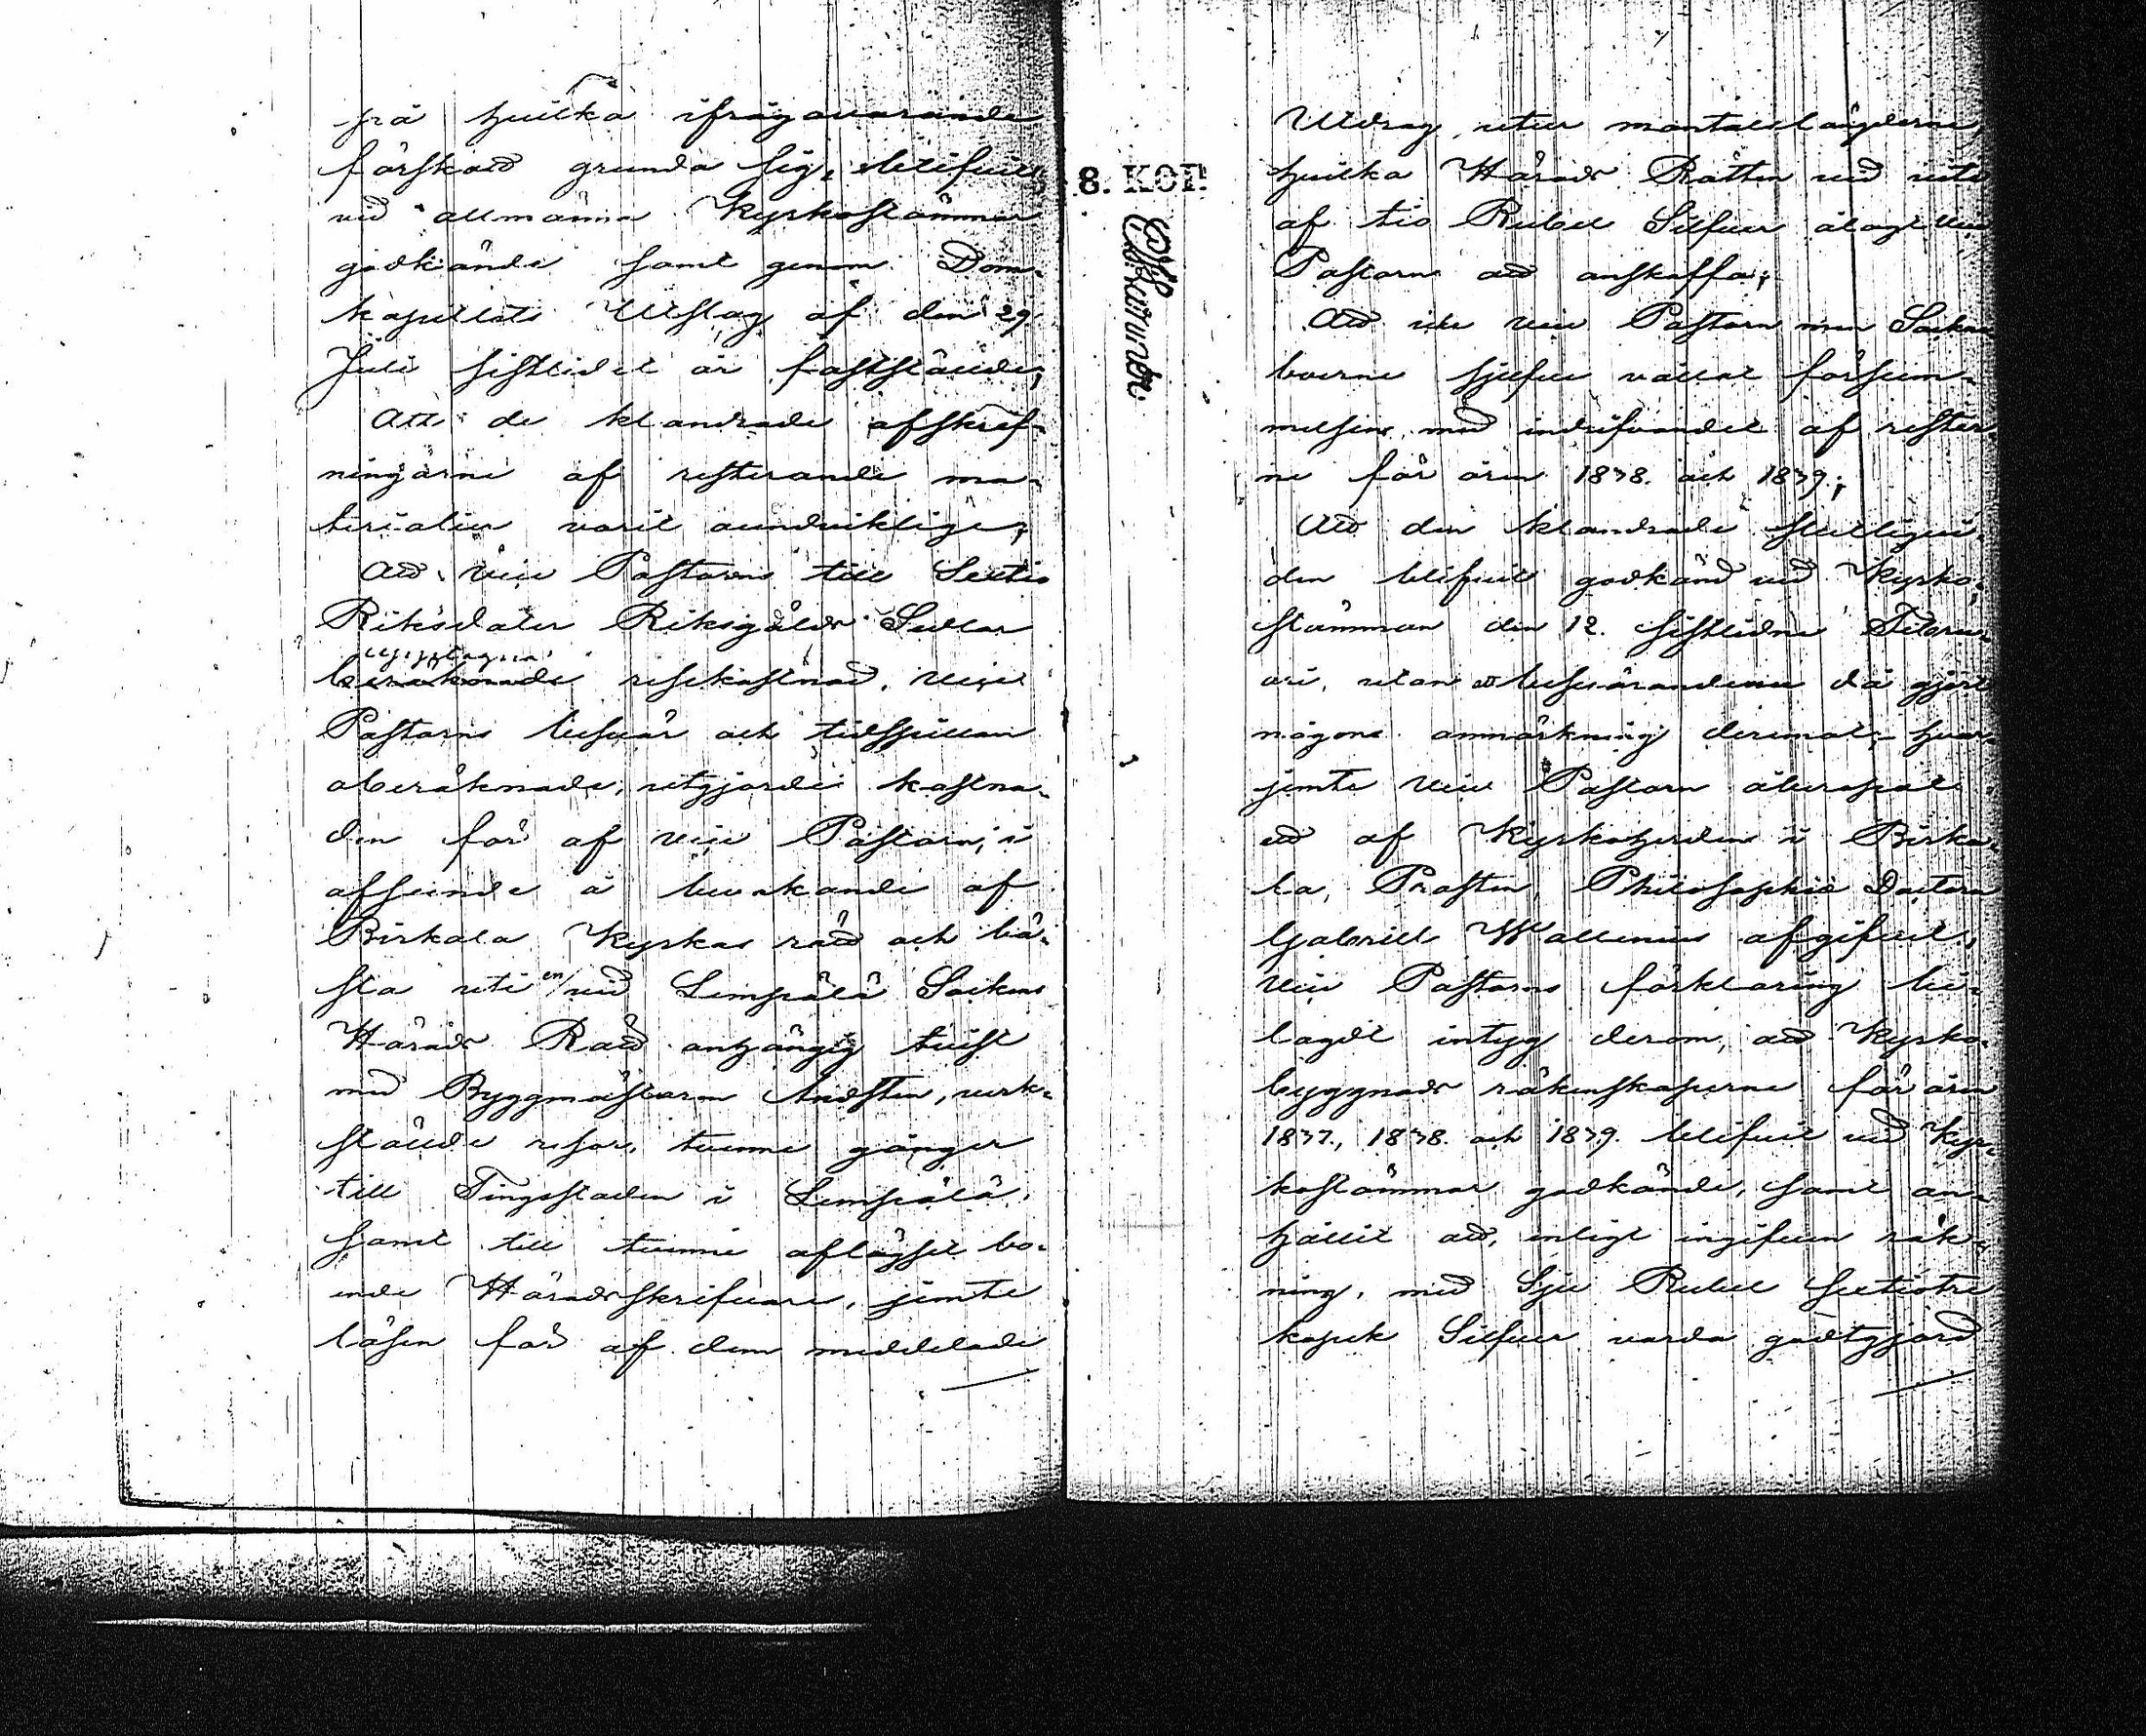 på hvilka ifrågavarande
förskott grunda sig, blifvit
vid allmänna Kyrkostämmor
godkände samt genom Dom-
kapitlets Utslag af den 29
Juli sistlidet år fastställde;
Att de klandrade afskrif-
ningarne af resterande ma-
terialier varit oundvikliga;
Att Vice Pastorn till Sextio
Riksdaler Riksgälds Sedlar
uppptagna
beräknade resekostnad, Vice
Pastorns besvär och tidsspillan
oberäknade, utgjorde kostna-
den för af vice Pastorn, i
afseende å bevakande af
Birkala Kyrkas rätt och bä-
sta uti en vid Lempälä Sockens
Härads Rätt anhängig tvist
med Byggmästaren Andstén, verk-
stälde resor, tvenne gånger
till Tingsstaden i Lempälä,
samt till tvenne aflägset bo-
ende Häradsskrifvare, jemte
lösen för af dem meddelade
8. KOP.
Utdrag utur mantalslängderne,
hvilka Härads Rätten vid vite
af tio Rubel Silfver ålagt Vice
Pastorn att anskaffa;
Att icke Vice Pastorn men Sockne
boerne sjelfve vållat försum-
melsen med indrifvandet af rester-
ne för åren 1838. och 1839.;
Att den klandrade
den blifvit godkänd vid Kyrko-
stämman den 12. sistlidne Febru-
ari, utan att besväranderne då gjort
någon anmärkning deremot; hvar-
jemte Vice Pastorn åberopat
ett af Kyrkoherden i Birka-
la, Prosten, Philosophie Doctorn
Gabriel Wallenius afgifvet,
Vice Pastorns förklaring bi-
lagdt intyg derom, att Kyrko-
byggnads räkenskaperne för åren
1837., 1838. och 1839. blifvit vid Kyr-
kostämmor godkände, samt an-
hållit att, enligt ingifven räk-
ning, med Sju Rubel sextiotre
kopek Silfver varda godtgjord